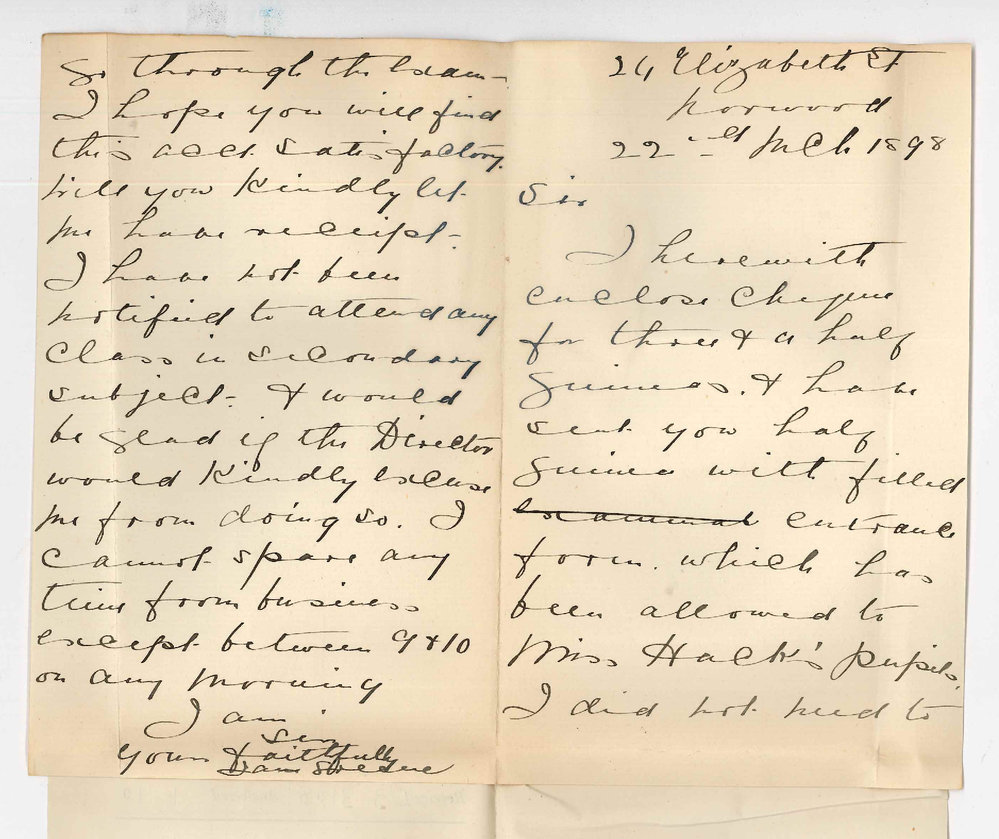 24 Elizabeth St
Norwood
22nd Mch 1898
Sir
I herewith
enclose cheque
for three & a half
Guineas. & have
sent you half
Guinea with filled
examinat entrance
form. which has
been allowed to
Miss Hack's pupils.
I did not need to
go through the Exam-
I hope you will find
this acct. satisfactory.
Will you Kindly let
me have receipt.
I have not been
notified to attend any
Class in secondary
subject. & would
be glad if the Director
would Kindly excuse
me from doing so. I
cannot spare any
time from business
except between 9 & 10
on any morning
I am
Sir
Yours faithfully